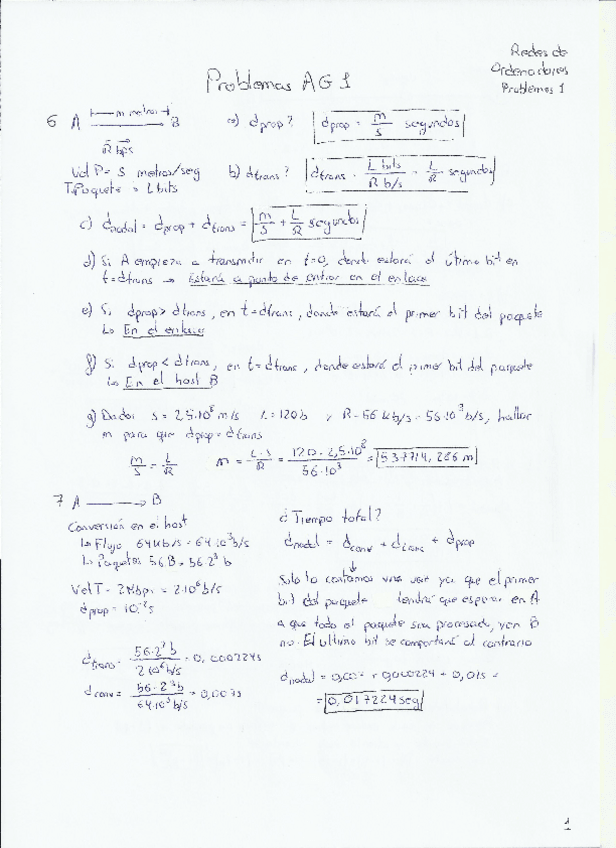 Redes de
Ordenadores
Problemas 1
Problemas AG1
6 A |— m metros —| B
R bps
Vel P = s metros/seg
T.Paquete = L bits
a) dprop? dprop = m/s segundos
b) dtrans? dtrans = L bits / R b/s = L/R segundos
c) dnodal = dprop + dtrans = m/s + L/R segundos
d) Si A empieza a transmitir en t=0, donde estará el último bit en
t=dtrans → Estará a punto de entrar en el enlace
e) Si dprop > dtrans, en t=dtrans, donde estará el primer bit del paquete
↳ En el enlace
f) Si dprop < dtrans, en t=dtrans, donde estará el primer bit del paquete
↳ En el host B
g) Dado: s = 2,5·10⁸ m/s L=120b y R=56 kb/s = 56·10³ b/s, hallar
m para que dprop = dtrans
m/s = L/R m = L·s/R = 120·2,5·10⁸ / 56·10³ = 537714,286 m
7 A → B
Conversión en el host
↳ Flujo 64Kb/s = 64·10³ b/s
↳ Paquetes 56B = 56·2³ b
Vel T = 2Mbps = 2·10⁶ b/s
dprop = 10⁻² s
dtrans = 56·2³ b / 2·10⁶ b/s = 0,000224s
dconv = 56·2³ b / 64·10³ b/s = 0,007s
¿Tiempo total?
dnodal = dconv + dtrans + dprop
Solo lo contamos una vez ya que el primer
bit del paquete tendrá que esperar en A
a que todo el paquete sea procesado, y en B
no. El ultimo bit se comportará al contrario
dnodal = 0,007 + 0,000224 + 0,01s =
= 0,017224 seg
1